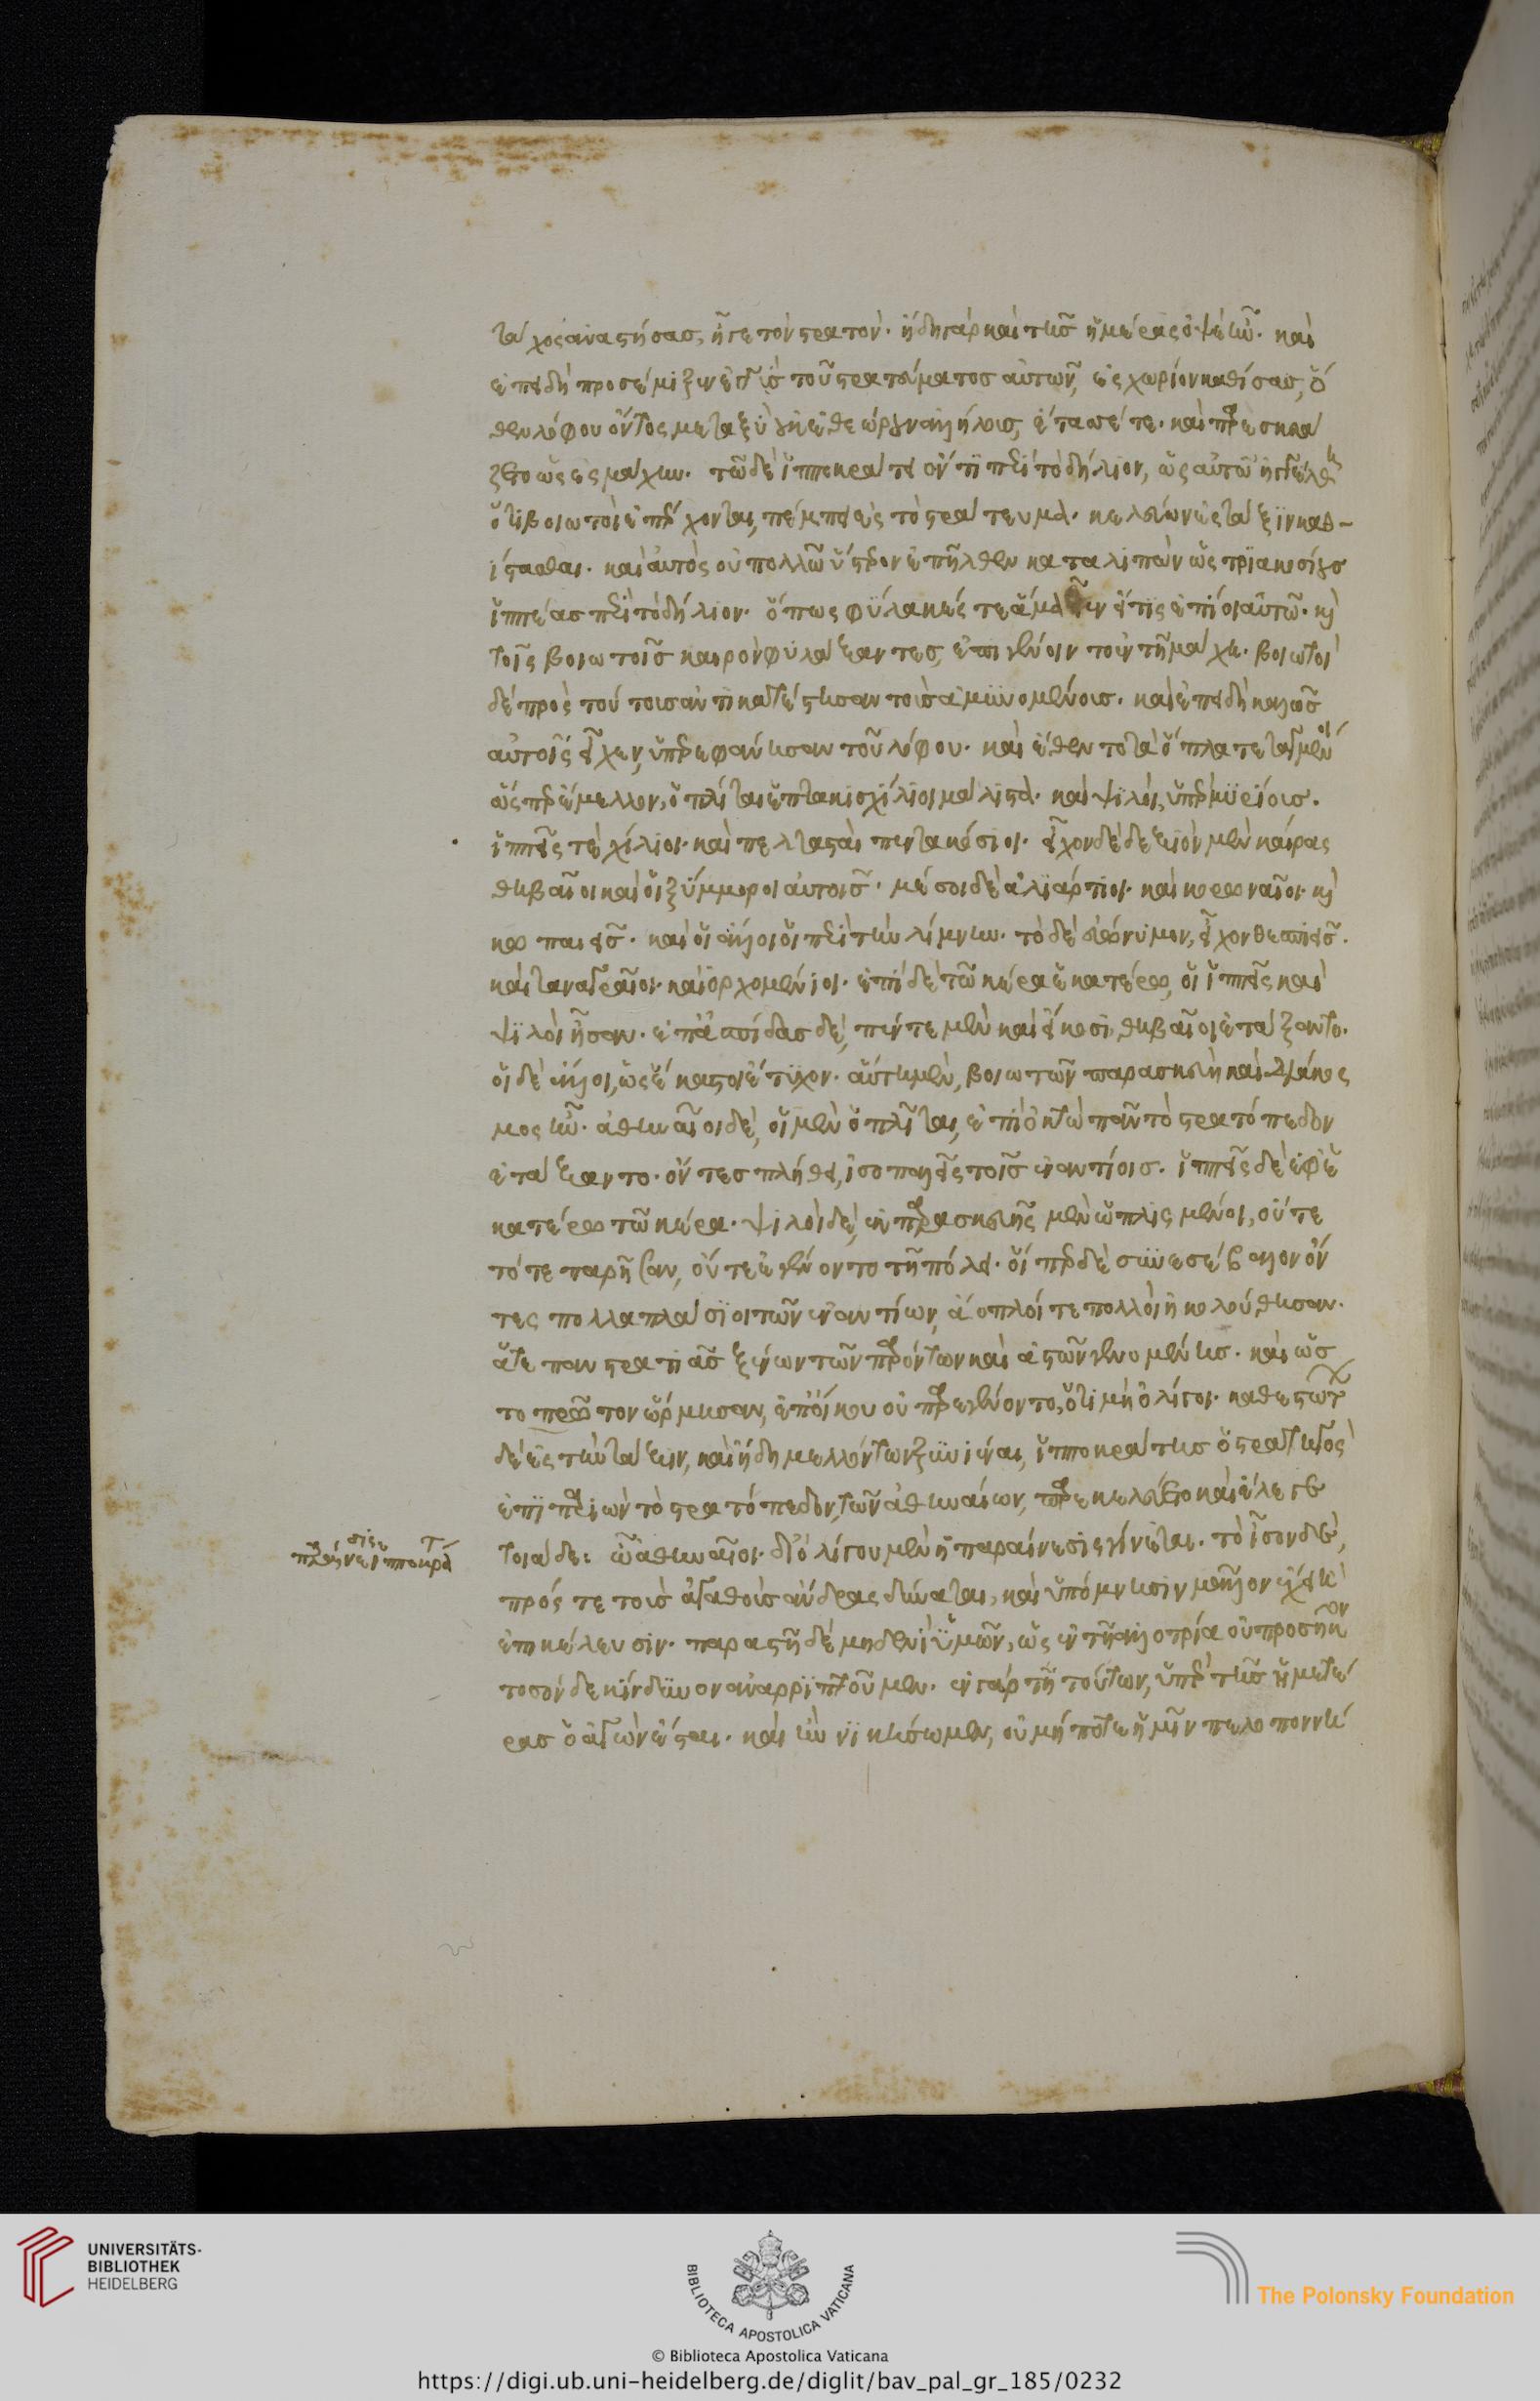 τάχος ἀναστήσας, ἦγε τὸν στρατὸν. ἤδη γὰρ καὶ τῆς ἡμέρας ὀψὲ ἦν. καὶ
ἐπειδὴ προσέμιξεν ἐγγὺς τοῦ στρατεύματος αὐτῶν, ἐς χωρίον καθίσας, ὅ
θεν λόφου ὄντος μεταξὺ οὐκ ἐθεώρουν ἀλλήλους, ἔτασσέ τε. καὶ παρεσκευά
ζετο ὡς ἐς μάχην. τῶ δὲ ἱπποκράτει ὄντι περὶ τὸ δήλιον, ὡς αὐτῶ ἠγγέλθη
ὅτι βοιωτοὶ ἐπέρχονται, πέμπει ἐς τὸ στράτευμα. κελεύων ἐς τάξιν καθ-
ίστασθαι. καὶ αὐτὸς οὐ πολλῶ ὕστερον ἐπῆλθεν καταλιπὼν ὡς τριακοσίους
ἱππέας περὶ τὸ δήλιον. ὅπως φύλακές τε ἅμα εἶεν εἴ τις ἐπίοι αὐτῶ. καὶ
τοῖς βοιωτοῖς καιρὸν φυλάξαντες, ἐπιγένοιντο ἐν τῆ μάχη. βοιωτοὶ
δὲ πρὸς τούτοις ἀντικατέστησαν τοὺς ἀμυνομένους. καὶ ἐπειδὴ καλῶς
αὐτοῖς εἶχεν, ὑπερεφάνησαν τοῦ λόφου. καὶ ἔθεντο τὰ ὅπλα τεταγμένοι
ὥσπερ ἔμελλον, ὁπλῖται ἑπτακισχίλιοι μάλιστα. καὶ ψιλοὶ, ὑπὲρ μυρίους.
ἱππεῖς τὲ χίλιοι. καὶ πελτασταὶ πεντακόσιοι. εἶχον δὲ δεξιὸν μὲν κέρας
θηβαῖοι καὶ οἱ ξύμμοροι αὐτοῖς. μέσοι δὲ ἁλιάρτιοι. καὶ κορωναῖοι. καὶ
κωπαιεῖς. καὶ οἱ ἄλλοι οἱ περὶ τὴν λίμνην. τὸ δὲ εὐώνυμον, εἶχον θεσπιεῖς.
καὶ ταναγραῖοι. καὶ ὀρχομένιοι. ἐπὶ δὲ τῶ κέρα ἑκατέρω, οἱ ἱππεῖς καὶ
ψιλοὶ ἦσαν. ἐπ' ἀσπίδας δὲ, πέντε μὲν καὶ εἴκοσι, θηβαῖοι ἐτάξαντο.
οἱ δὲ ἄλλοι, ὡς ἕκαστοι ἔτυχον. αὕτη μὲν, βοιωτῶν παρασκευὴ καὶ διάκος
μος ἦν. ἀθηναῖοι δὲ, οἱ μὲν ὁπλῖται, ἐπὶ ὀκτὼ πᾶν τὸ στρατόπεδον
ἐτάξαντο. ὄντες πλήθει, ἰσοπαλεῖς τοῖς ἐναντίοις. ἱππεῖς δὲ ἐφ' ἑ
κατέρω τῶ κέρα. ψιλοὶ δὲ, ἐκ παρασκευῆς μὲν ὡπλισμένοι, οὔτε
τότε παρῆσαν, οὔτε ἐγένοντο τῆ πόλει. οἵπερ δὲ συνεσέβαλον ὄν
τες πολλαπλάσιοι τῶν ἐναντίων, ἄοπλοί τε πολλοὶ ἠκολούθησαν.
ἅτε πανστρατιᾶς ξένων τῶν παρόντων καὶ ἀστῶν γενομένης. καὶ ὡς
τοπρῶτον ὥρμησαν, ἐπ' οἴκου οὐ παρεγένοντο, ὅτι μὴ ὀλίγοι. καθεστώτων
δὲ ἐς τὴν τάξιν, καὶ ἤδη μελλόντων ξυνιέναι, ἱπποκράτης ὁ στρατηγὸς
ἐπιπαριὼν τὸ στρατόπεδον, τῶν ἀθηναίων, παρεκελεύετο καὶ ἔλεγε
παραίνεσις ἱπποκράτ
τοιάδε: ὦ ἀθηναῖοι. δι' ὀλίγου μὲν ἡ παραίνεσις γίνεται. τὸ ἴσον δὲ,
πρός τε τοὺς ἀγαθοὺς ἄνδρας δύναται, καὶ ὑπόμνησιν μᾶλλον ἔχει ἢ
ἐπικέλευσιν. παραστῆ δὲ μηδενὶ ὑμῶν, ὡς ἐν τῆ ἀλλοτρία οὐ προσῆκον
τοσόνδε κίνδυνον ἀναρριπτοῦμεν. ἐν γὰρ τῆ τούτων, ὑπὲρ τῆς ἡμετέ
ρας ὁ ἀγὼν ἔσται. καὶ ἢν νικήσωμεν, οὐ μή ποτε ἡμῖν πελοποννή
UNIVERSITÄTS-
BIBLIOTHEK
HEIDELBERG
BIBLIOTECA APOSTOLICA VATICANA
The Polonsky Foundation
© Biblioteca Apostolica Vaticana
https://digi.ub.uni-heidelberg.de/diglit/bav_pal_gr_185/0232